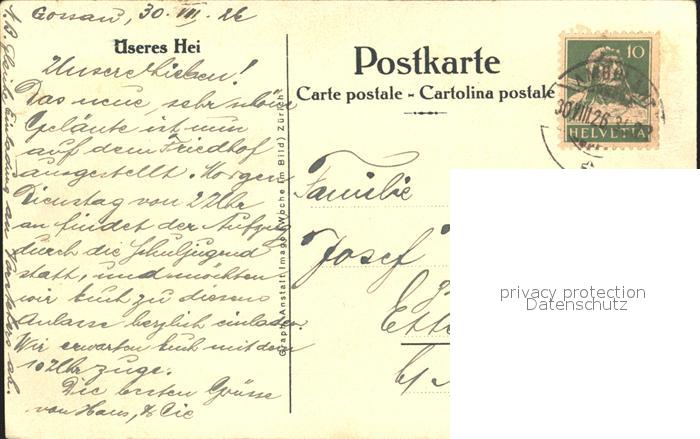 Gossau, 30. VIII. 26
Üseres Hei
Unsere Lieben!
Das neue, sehr schöne
Geläute ist nun
auf dem Friedhof
ausgestellt. Morgen
Dienstag von 2 Uhr
an findet der Aufzug
durch die Schuljugend
statt, und möchten
wir Euch zu diesem
Anlasse herzlich einladen.
Wir erwarten Euch mit dem
10 Uhr Zuge.
Die besten Grüsse
von Hans, & Cie
Graph. Anstalt Imago (Woche im Bild) Zürich
Postkarte
Carte postale - Cartolina postale
10
HELVETIA
30.VIII.26
Familie
Josef
Ett
privacy protection
Datenschutz